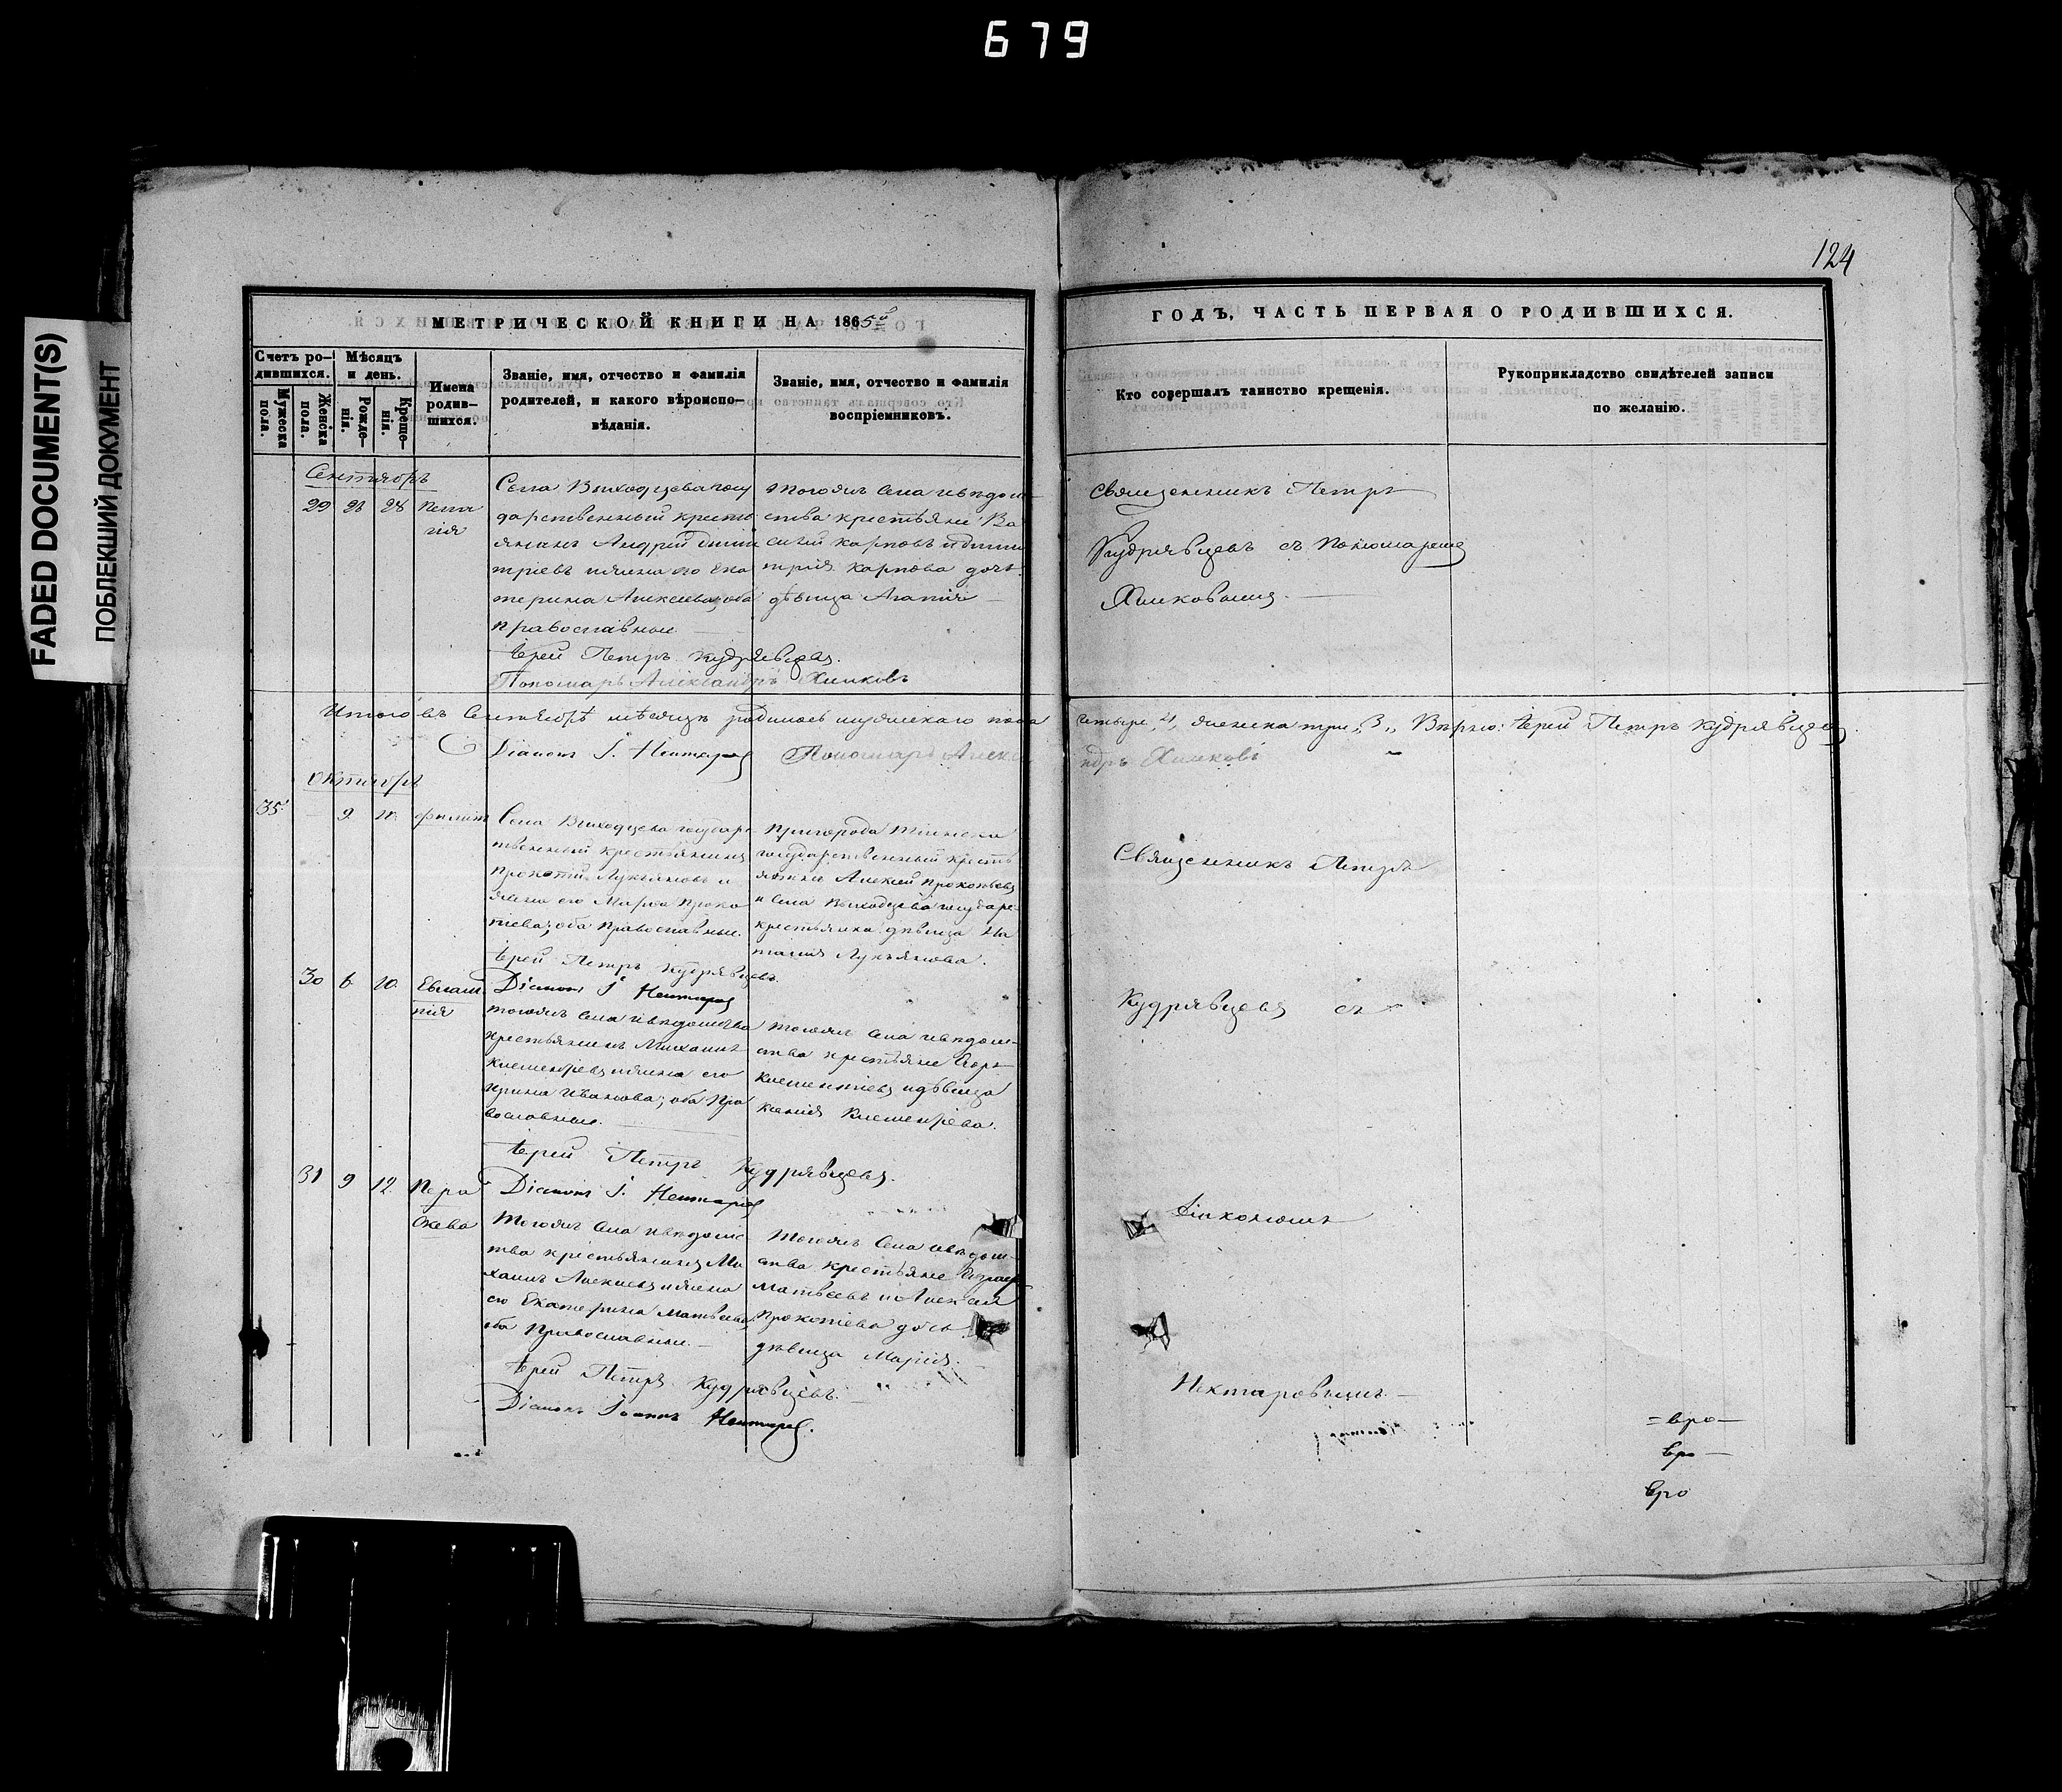 679
FADED DOCUMENT(S)
ПОБЛЕКШИЙ ДОКУМЕНТ
124
МЕТРИЧЕСКОЙ КНИГИ НА 1865й
ГОДЪ, ЧАСТЬ ПЕРВАЯ О РОДИВШИХСЯ.
Счетъ ро-
дившихся.
Мужеска
пола.
Женска
пола.
Мѣсяцъ
и день.
Рожде-
нія.
Креще-
нія.
Имена
родив-
шихся.
Званіе, имя, отчество и фамилія
родителей, и какого вѣроиспо-
вѣданія.
Званіе, имя, отчество и фамилія
воспріемниковъ.
Кто совершалъ таинство крещенія.
Рукоприкладство свидѣтелей записи
по желанію.
Сентябрь
29 28
Села Выходцева госу
дарственный кресть
янинъ Андрей Дими
тріевъ и жена его Ека
терина Алексеева, оба
православные
Іерей Петръ Кудрявцевъ.
Пономарь Александръ Хилковъ
тогожъ села и вѣдом-
ства крестьяне Ва
силій Карповъ и Дими
трія Карпова дочь
дѣвица Агапія
Священникъ Петръ
Кудрявцевъ съ Пономаремъ
Хилковымъ
Итого въ Сентябрѣ мѣсяцѣ родилось мужескаго пола четыре, 4, женска три, 3, Вѣрно: Іерей Петръ Кудрявцевъ.
Діаконъ І. Нектаровъ Пономарь Александръ Хилковъ
Октябрь
35 9
Филиппъ
Села Выходцева государс
твенный крестьянинъ
Прокопій Лукьяновъ и
жена его Марѳа Проко
піева; оба православные.
Іерей Петръ Кудрявцевъ.
Діаконъ І. Нектаровъ
Пригорода Тіинска
государственный кресть
янинъ Алексей Прокопьевъ
и села Выходцева государс
крестьянка дѣвица На
талія Лукьянова.
Священникъ Петръ
30 6 10
Евлам
пія
тогожъ села и вѣдомства
крестьянинъ Михаилъ
Климентьевъ и жена его
Ирина Иванова; оба пра
вославные.
Іерей Петръ Кудрявцевъ.
Діаконъ І. Нектаровъ
тогожъ села и вѣдом-
ства крестьяне Егоръ
Климентіевъ и дѣвица
Ксенія Климентьева.
Кудрявцевъ съ
31 9 12
Пара
скева
Тогожъ села и вѣдомс
тва крестьянинъ Ми
хаилъ Алексеевъ и жена
его Екатерина Матвеева,
оба православные.
Іерей Петръ Кудрявцевъ.
Діаконъ Іоаннъ Нектаровъ.
Тогожъ села и вѣдом-
ства крестьяне
Матвеевъ и Алексея
Прокопіева дочь
дѣвица Марія.
Діакономъ
Нектаровымъ.